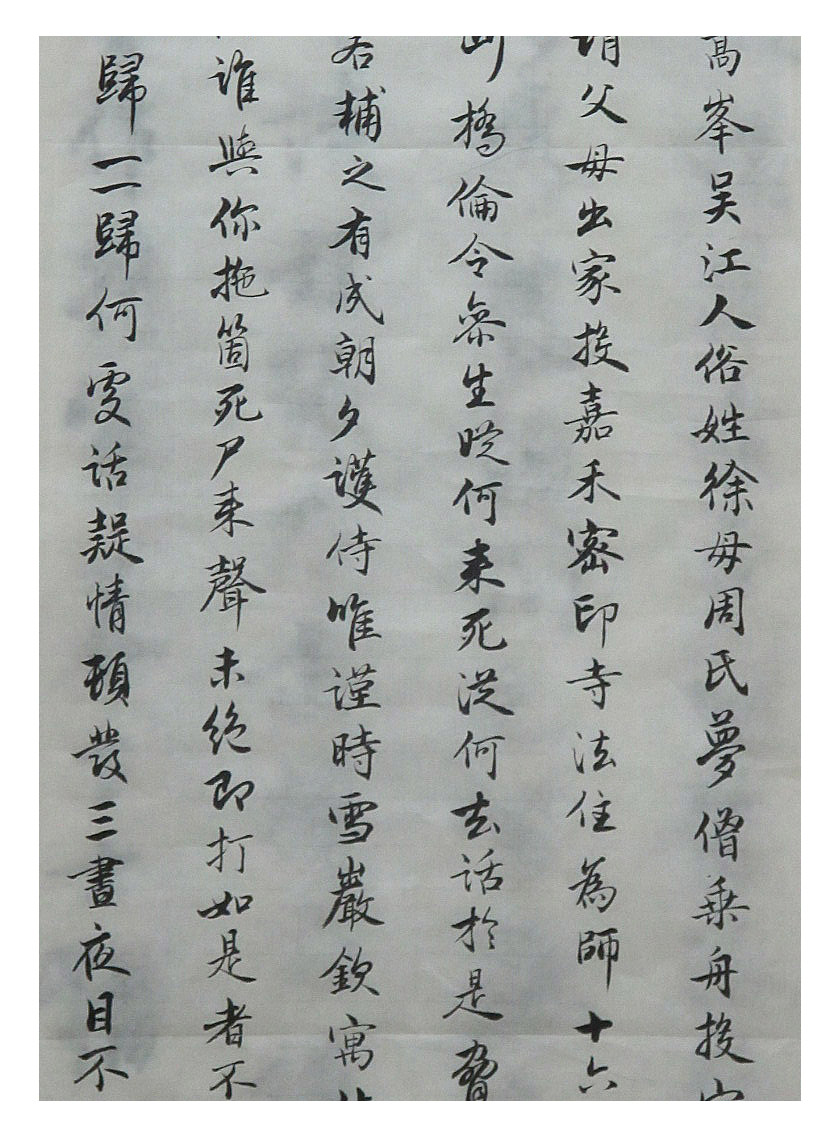 高峯吴江人俗姓徐母周氏夢僧乗舟投宀
請父母出家投嘉禾密印寺法住為師十六
断橋倫令衆生従何来死従何去話於是脅
若輔之有成朝夕護侍唯謹時雪巖欽寓
誰與你拖箇死尸来聲未絶即打如是者不
歸一一歸何處話疑情頓發三晝夜目不